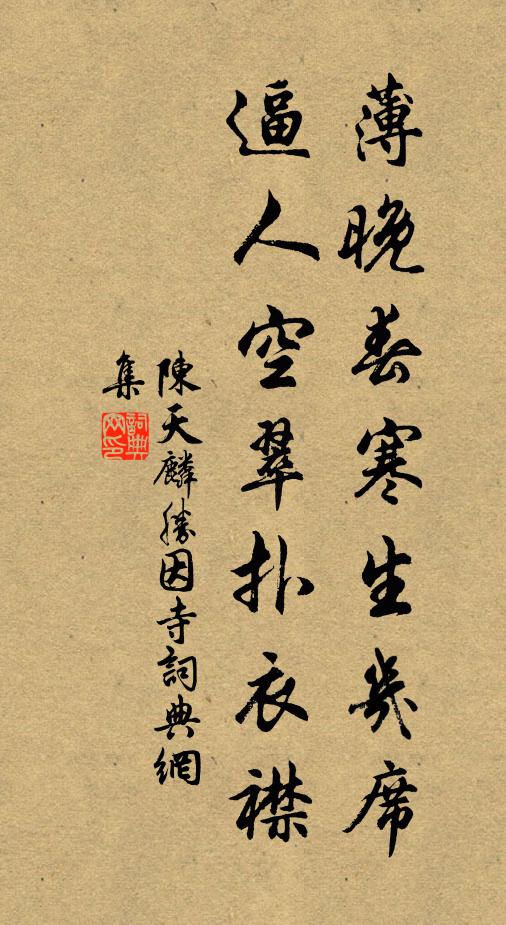 薄晚春寒生几席
逼人空翠扑衣襟
陳天麟勝因寺詞典網
集
詞典
网印